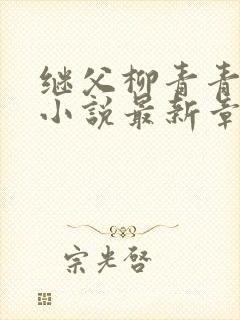 继父柳青青
小说最新章
宗光啓